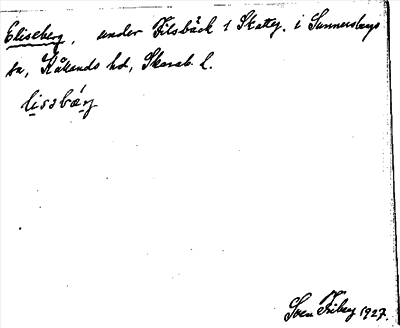 Eliseberg, under Filsbäck 1 Skatteg. i Sunnersbergs
sn, Kållands hd, Skarab. l.
lisəbærj
Sven Friberg 1927.